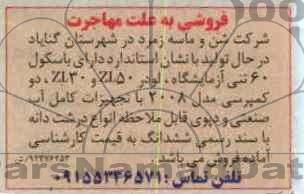 فروشی به علت مهاجرت
شرکت شن و ماسه زمرد در شهرستان گناباد
در حال تولید با نشان استاندارد دارای باسکول
۶۰ تنی آزمایشگاه ، لودر L۵۰ و L۳۰ ، دو
کمپرسی مدل ۲۰۰۸ با تجهیزات کامل آب
صنعتی و دپوی قابل ملاحظه انواع درشت دانه
با سند رسمی ششدانگ به قیمت کارشناسی
آماده فروش می باشد.
تلفن تماس : ۰۹۱۵۵۳۴۶۵۷۱
ParsNamaddat